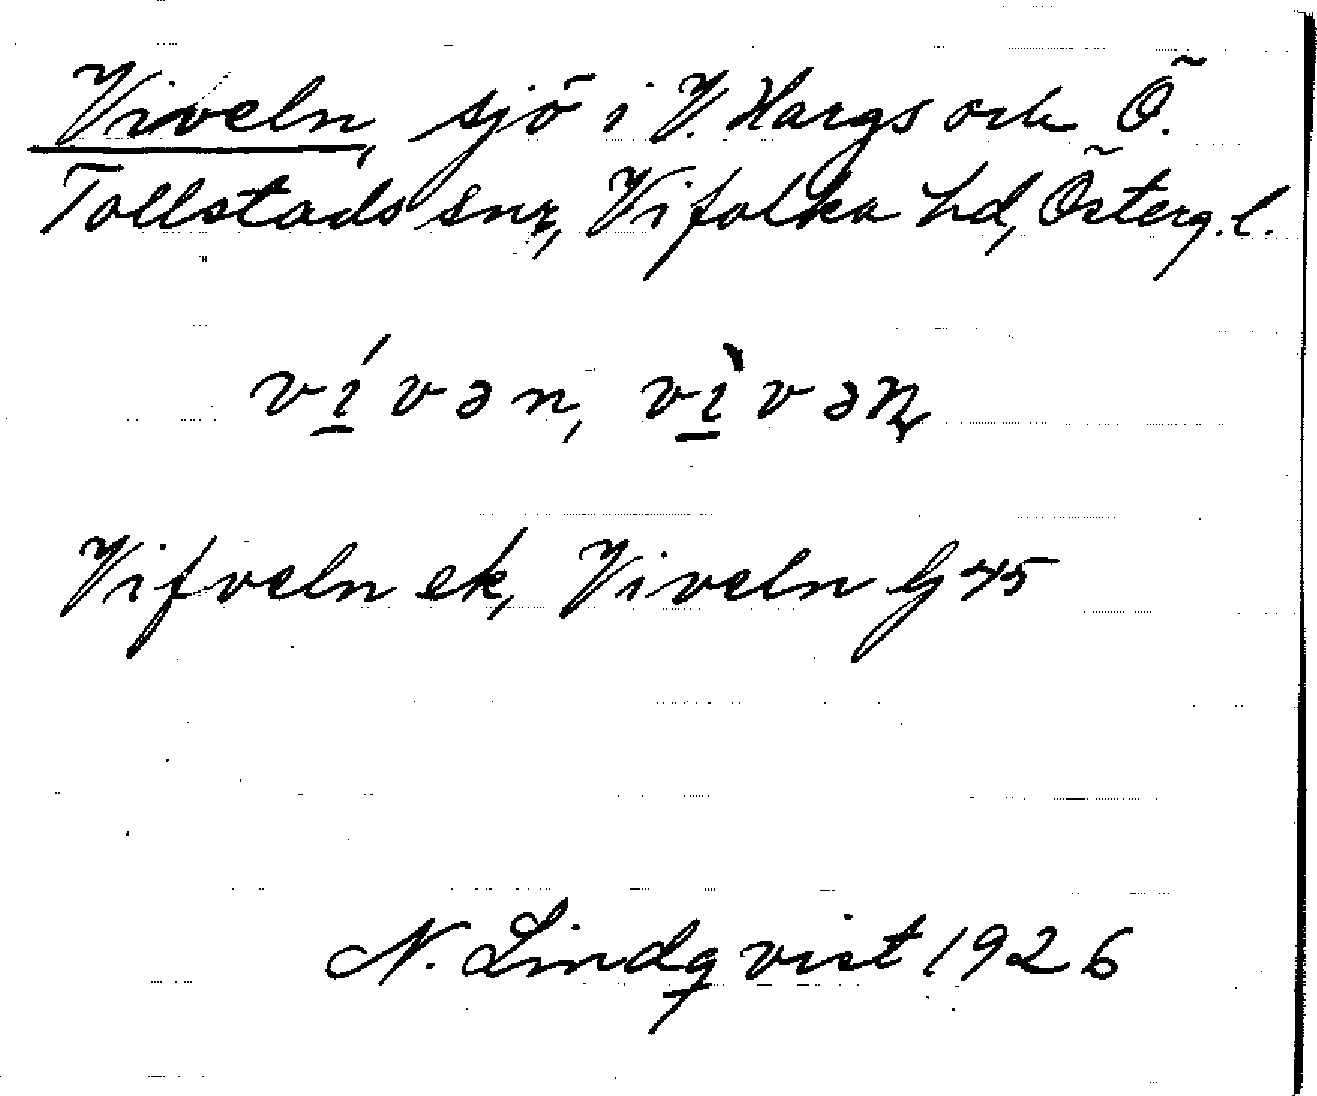 Viveln, sjö i V. Hargs och Ö.
Tollstads snr, Vifolka hd, Österg. l.
ví̱vən, vı̱̀vəṇ
Vifveln ek, Viveln G 45
N. Lindqvist 1926